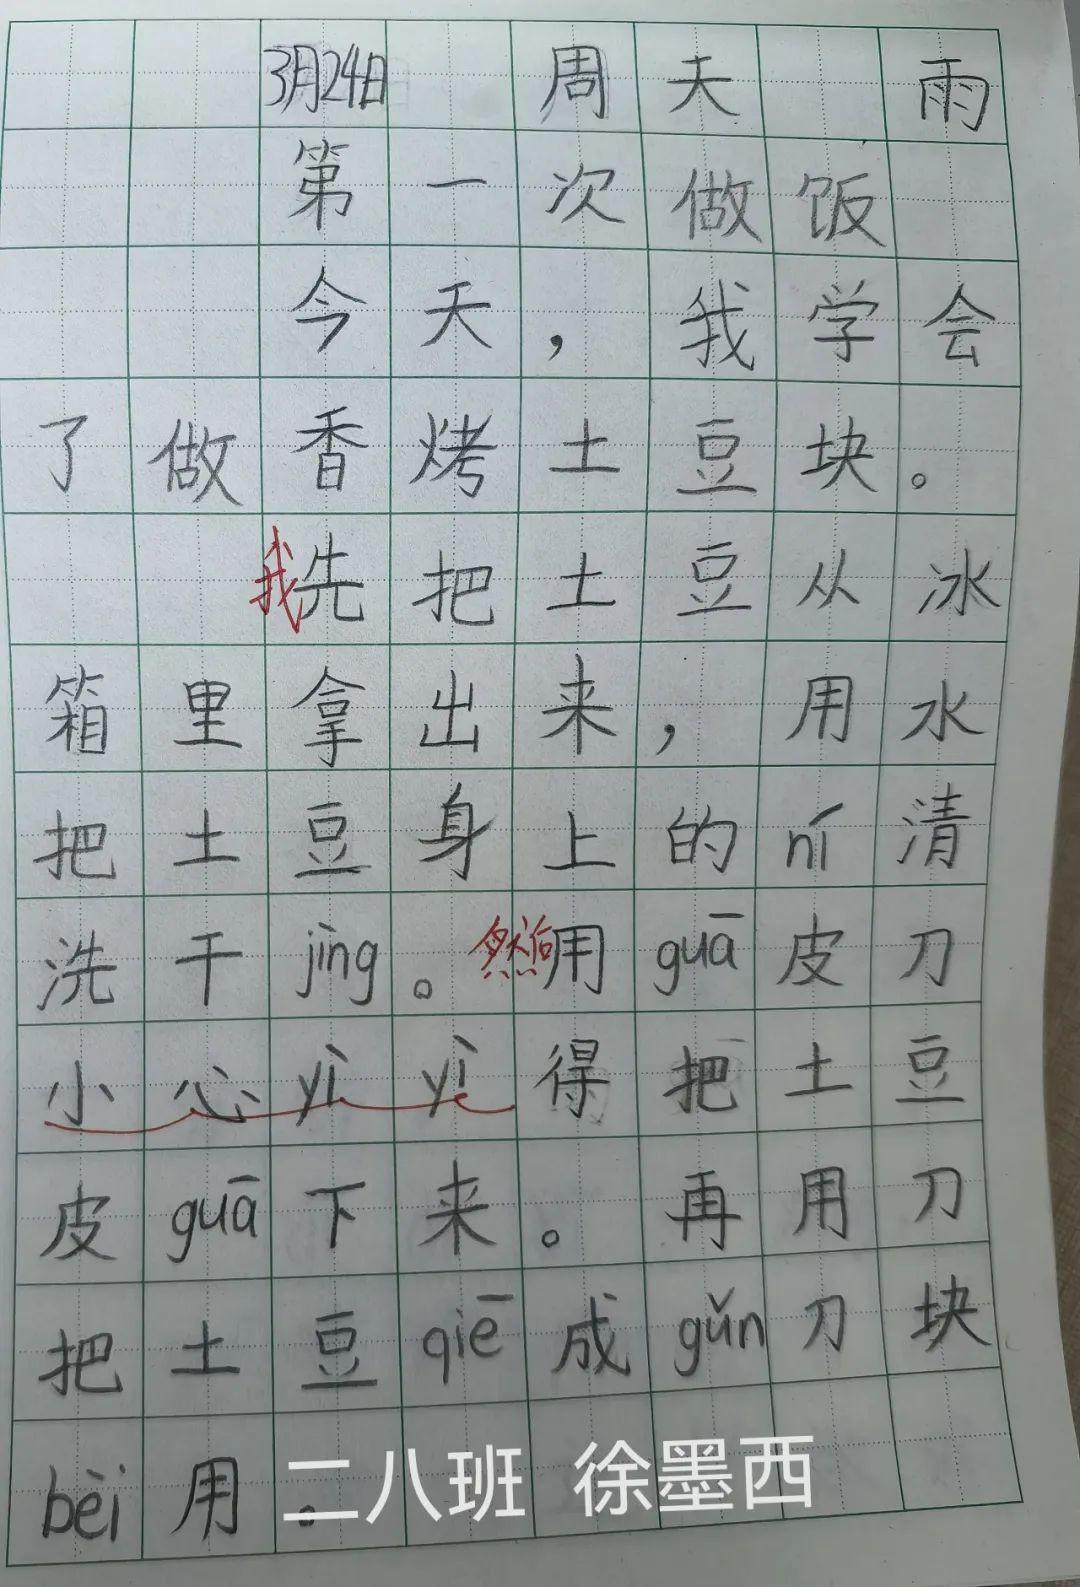 3月24日 周天 雨
第一次做饭
今天，我学会
了做香烤土豆块。
我先把土豆从冰
箱里拿出来，用水
把土豆身上的ní清
洗干jìng。然后用guā皮刀
小心yìyì得把土豆
皮guā下来。再用刀
把土豆qiē成gǔn刀块
bèi用。
二八班 徐墨西